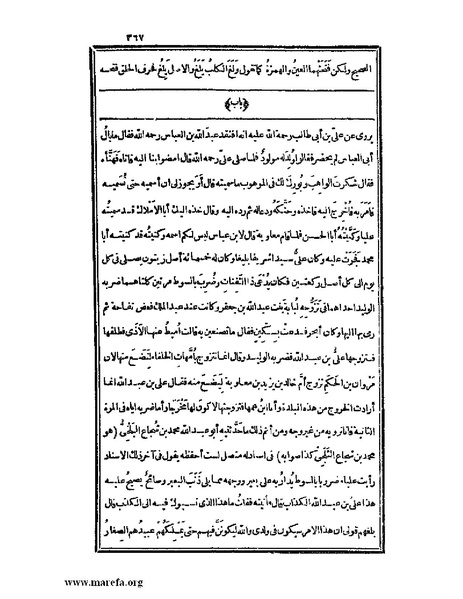 ٣٦٧
الصحيح ولكن فتحتهما العين والهمزة كما تقول ولغ الكلب يلغ والاصل يلغ فحرف الحلق فتحه
﴿باب﴾
يروى عن على بن أبى طالب رحمة الله عليه انه افتقد عبد الله بن العباس رحمه الله فقال ما بال
أبى العباس لم يحضر فقالوا ولد له مولود فلما صلى على رحمه الله قال امضوا بنا اليه فاتاه فهنأه
فقال شكرت الواهب وبورك لك فى الموهوب ما سميته قال أو يجوز لى أن أسميه حتى تسميه
فامر به فاخرج اليه فاخذه وحنكه ودعا له ثم رده اليه وقال خذه اليك أبا الأملاك قد سميته
عليا وكنيته أبا الحسن فلما قام معاوية قال لابن عباس ليس لكم اسمه وكنيته قد كنيته أبا
محمد فجرت عليه وكان على سيدا شريفا بليغا وكان له خمسمائة أصل زيتون يصلى فى كل
يوم الى كل أصل ركعتين فكان يدعى ذا الثفنات وضرب بالسوط مرتين كلتاهما ضربه
الوليد احداهما فى تزوجه لبابة بنت عبد الله بن جعفر وكانت عند عبد الملك فعض تفاحة ثم
رمى بها اليها وكان أبخر فدعت بسكين فقال ما تصنعين به قالت أميط عنها الأذى فطلقها
فتزوجها على بن عبد الله فضربه الوليد وقال انما تتزوج بأمهات الخلفاء لتضع منها لان
مروان بن الحكم تزوج أم خالد بن يزيد بن معاوية ليضع منه فقال على بن عبد الله انما
أرادت الخروج من هذه البلدة وأنا ابن عمها فتزوجتها لاكون لها محرجا وأما ضربه اياه فى المرة
الثانية فانا نرويه من غير وجه ومن أتم ذلك ما حدثنيه أبو عبد الله محمد بن شجاع البلخى (هو
محمد بن شجاع الثلجى كذا صوابه) فى اسناد له متصل لست أحفظه يقول فى آخر ذلك الاسناد
رأيت عليا ضرب بالسوط يدار به على بعير ووجهه مما يلى ذنب البعير وصائح يصيح عليه
هذا على بن عبد الله الكذاب قال فأتيته فقلت ما هذا الذى نسبوك فيه الى الكذب قال
بلغهم قولى ان هذا الامر سيكون فى ولدى والله ليكونن فيهم حتى يملكهم عبيدهم الصغار
www.marefa.org